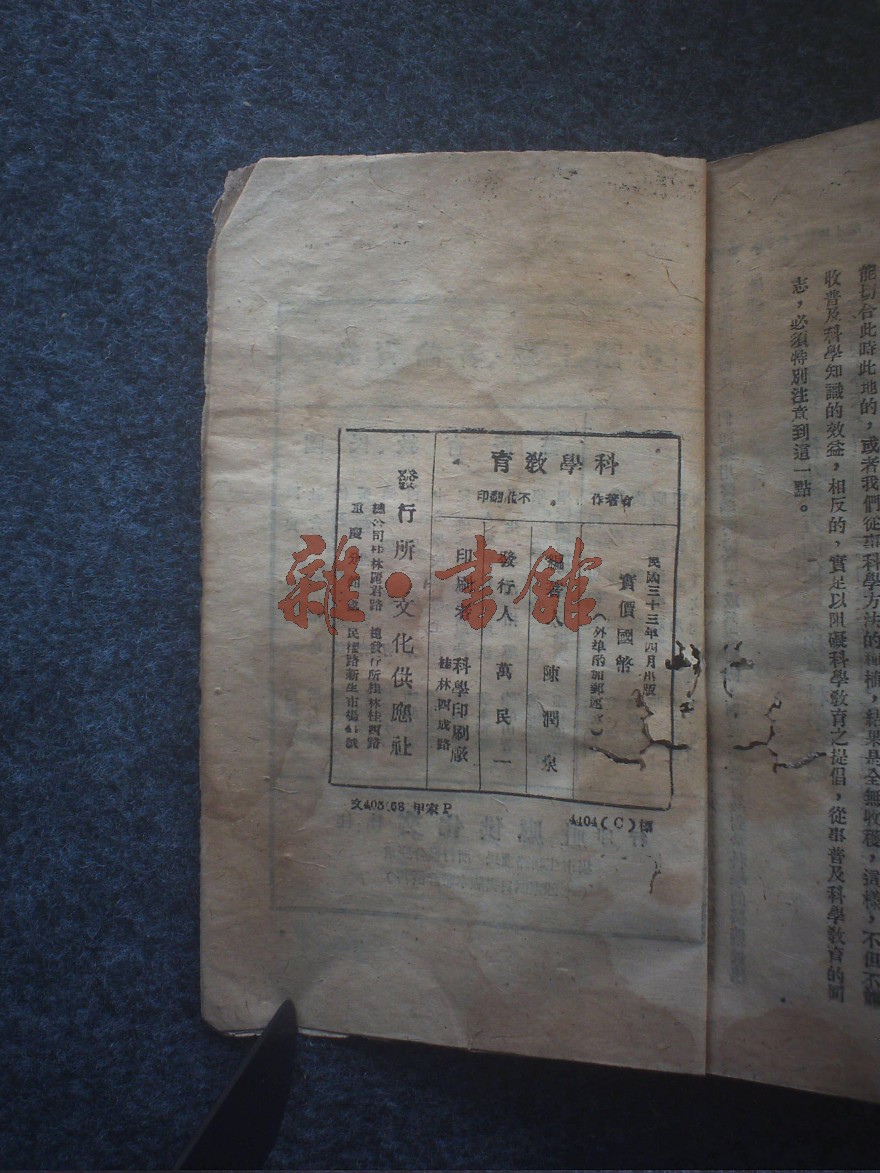 能切合此時此地的，或者我們從事科學方法的種植，結果是全無收穫，這樣，不但不能
收普及科學知識的效益，相反的，實足以阻礙科學教育之提倡，從事普及科學教育的同
志，必須特別注意到這一點。
科學教育
有著作 不准翻印
民國三十三年四月出版
實價國幣
（外埠酌加郵運費）
編著人 陳潤泉
發行人 萬民一
印刷者 科學印刷廠
桂林四成路
發行所 文化供應社
總公司桂林麗君路 總發行所桂林桂西路
重慶 民權路新生市場
4404(C)
雜·書館